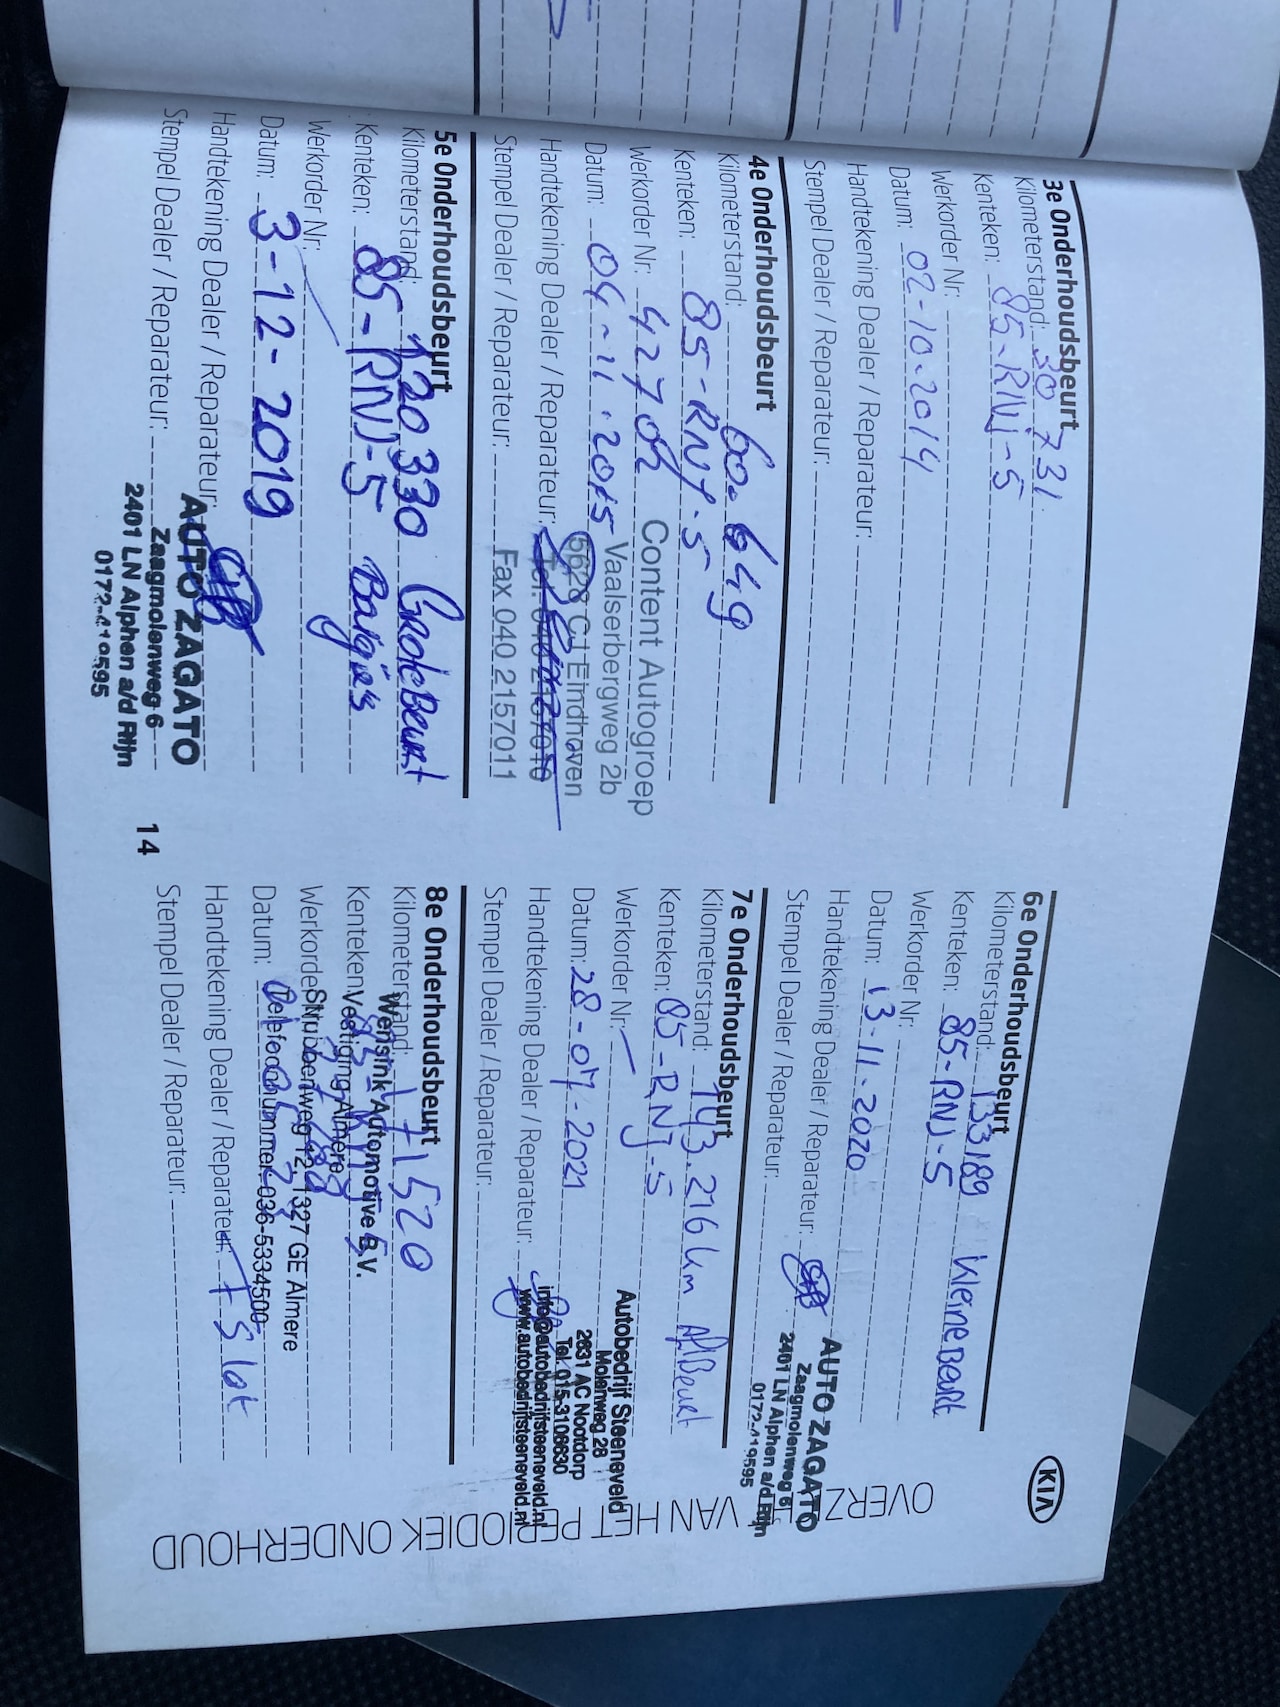 3e Onderhoudsbeurt
Kilometerstand: 30731
Kenteken: 85-RNJ-5
Werkorder Nr:
Datum: 02-10-2014
Handtekening Dealer / Reparateur:
Stempel Dealer / Reparateur:
4e Onderhoudsbeurt
Kilometerstand: 60.649
Kenteken: 85-RNJ-5
Werkorder Nr: Content Autogroep
Datum: 04-11-2015 Vaalserbergweg 2b
Handtekening Dealer / Reparateur: 5628 CJ Eindhoven
Stempel Dealer / Reparateur: Fax 040 2157011
5e Onderhoudsbeurt
Kilometerstand: 120.330 Grote Beurt
Kenteken: 85-RNJ-5
Werkorder Nr:
Datum: 3-12-2019
Handtekening Dealer / Reparateur: AUTO ZAGATO
Stempel Dealer / Reparateur: Zaagmolenweg 6
2401 LN Alphen a/d Rijn
0172-419595
14
6e Onderhoudsbeurt
Kilometerstand: 133189 Kleine Beurt
Kenteken: 85-RNJ-5
Werkorder Nr:
Datum: 13-11-2020
Handtekening Dealer / Reparateur: AUTO ZAGATO
Stempel Dealer / Reparateur: Zaagmolenweg 6
2401 LN Alphen a/d Rijn
0172-419595
7e Onderhoudsbeurt
Kilometerstand: 143.216 km
Kenteken: 85-RNJ-5
Werkorder Nr: Autobedrijf Steeneveld
Molenweg 28
Datum: 28-07-2021 2631 AC Nootdorp
Tel. 015-3108630
Handtekening Dealer / Reparateur: info@autobedrijfsteeneveld.nl
www.autobedrijfsteeneveld.nl
Stempel Dealer / Reparateur:
8e Onderhoudsbeurt
Kilometerstand: 171520
Wensink Automotive B.V.
Kenteken: Vestiging Almere
Werkorder 12, 1327 GE Almere
Datum: Telefoonnummer: 036-5334500
Handtekening Dealer / Reparateur:
Stempel Dealer / Reparateur:
KIA
OVERZICHT VAN HET PERIODIEK ONDERHOUD